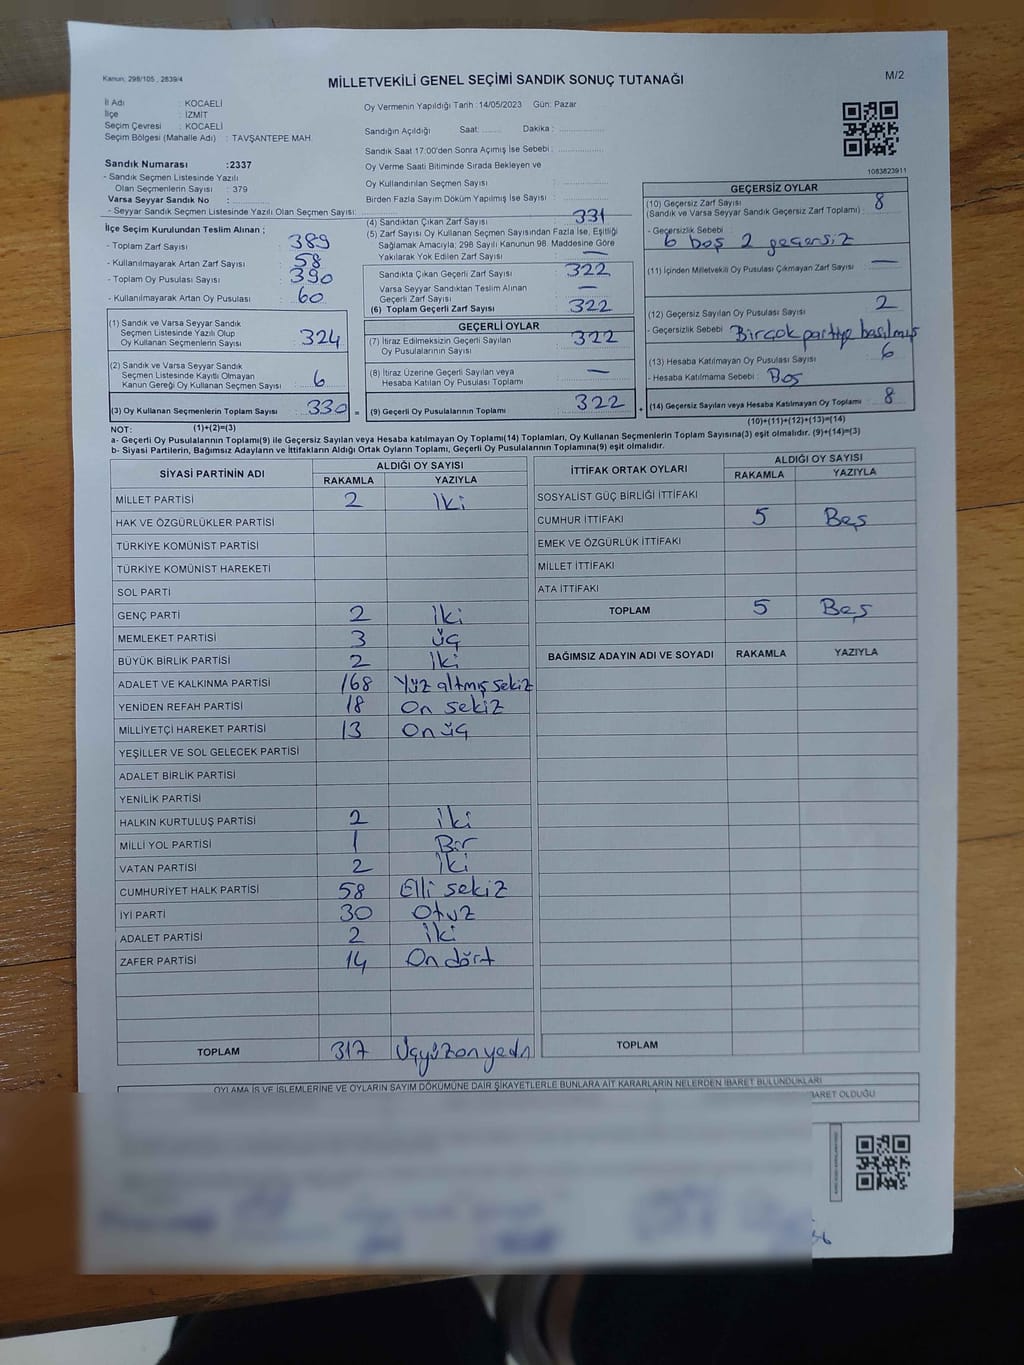 Kanun: 298/105 , 2839/4
MİLLETVEKİLİ GENEL SEÇİMİ SANDIK SONUÇ TUTANAĞI
M/2
İl Adı : KOCAELİ
İlçe : İZMİT
Seçim Çevresi : KOCAELİ
Seçim Bölgesi (Mahalle Adı) : TAVŞANTEPE MAH.
Sandık Numarası :2337
- Sandık Seçmen Listesinde Yazılı
Olan Seçmenlerin Sayısı : 379
Varsa Seyyar Sandık No :
- Seyyar Sandık Seçmen Listesinde Yazılı Olan Seçmen Sayısı:
Oy Vermenin Yapıldığı Tarih :14/05/2023 Gün: Pazar
Sandığın Açıldığı Saat: Dakika :
Sandık Saat 17:00'den Sonra Açımış İse Sebebi :
Oy Verme Saati Bitiminde Sırada Bekleyen ve
Oy Kullandırılan Seçmen Sayısı :
Birden Fazla Sayım Döküm Yapılmış İse Sayısı :
1083823911
İlçe Seçim Kurulundan Teslim Alınan ;
- Toplam Zarf Sayısı : 389
- Kullanılmayarak Artan Zarf Sayısı : 58
- Toplam Oy Pusulası Sayısı : 390
- Kullanılmayarak Artan Oy Pusulası : 60
(1) Sandık ve Varsa Seyyar Sandık
Seçmen Listesinde Yazılı Olup
Oy Kullanan Seçmenlerin Sayısı : 324
(2) Sandık ve Varsa Seyyar Sandık
Seçmen Listesinde Kayıtlı Olmayan
Kanun Gereği Oy Kullanan Seçmen Sayısı : 6
(3) Oy Kullanan Seçmenlerin Toplam Sayısı : 330
(4) Sandıktan Çıkan Zarf Sayısı : 331
(5) Zarf Sayısı Oy Kullanan Seçmen Sayısından Fazla İse, Eşitliği
Sağlamak Amacıyla; 298 Sayılı Kanunun 98. Maddesine Göre
Yakılarak Yok Edilen Zarf Sayısı : —
Sandıkta Çıkan Geçerli Zarf Sayısı : 322
Varsa Seyyar Sandıktan Teslim Alınan
Geçerli Zarf Sayısı : —
(6) Toplam Geçerli Zarf Sayısı : 322
GEÇERLİ OYLAR
(7) İtiraz Edilmeksizin Geçerli Sayılan
Oy Pusulalarının Sayısı : 322
(8) İtiraz Üzerine Geçerli Sayılan veya
Hesaba Katılan Oy Pusulası Toplamı : —
= (9) Geçerli Oy Pusulalarının Toplamı : 322
GEÇERSİZ OYLAR
(10) Geçersiz Zarf Sayısı : 8
(Sandık ve Varsa Seyyar Sandık Geçersiz Zarf Toplamı)
- Geçersizlik Sebebi :
6 boş 2 geçersiz
(11) İçinden Milletvekili Oy Pusulası Çıkmayan Zarf Sayısı : —
(12) Geçersiz Sayılan Oy Pusulası Sayısı : 2
- Geçersizlik Sebebi : Birçok partiye basılmış
(13) Hesaba Katılmayan Oy Pusulası Sayısı : 6
- Hesaba Katılmama Sebebi : Boş
+ (14) Geçersiz Sayılan veya Hesaba Katılmayan Oy Toplamı : 8
NOT: (1)+(2)=(3)
(10)+(11)+(12)+(13)=(14)
a- Geçerli Oy Pusulalarının Toplamı(9) ile Geçersiz Sayılan veya Hesaba katılmayan Oy Toplamı(14) Toplamları, Oy Kullanan Seçmenlerin Toplam Sayısına(3) eşit olmalıdır. (9)+(14)=(3)
b- Siyasi Partilerin, Bağımsız Adayların ve İttifakların Aldığı Oy Oyların Toplamı, Geçerli Oy Pusulalarının Toplamına(9) eşit olmalıdır.
SİYASİ PARTİNİN ADI ALDIĞI OY SAYISI
RAKAMLA YAZIYLA
MİLLET PARTİSİ 2 İki
HAK VE ÖZGÜRLÜKLER PARTİSİ
TÜRKİYE KOMÜNİST PARTİSİ
TÜRKİYE KOMÜNİST HAREKETİ
SOL PARTİ
GENÇ PARTİ 2 İki
MEMLEKET PARTİSİ 3 üç
BÜYÜK BİRLİK PARTİSİ 2 İki
ADALET VE KALKINMA PARTİSİ 168 Yüz altmış sekiz
YENİDEN REFAH PARTİSİ 18 On sekiz
MİLLİYETÇİ HAREKET PARTİSİ 13 On üç
YEŞİLLER VE SOL GELECEK PARTİSİ
ADALET BİRLİK PARTİSİ
YENİLİK PARTİSİ
HALKIN KURTULUŞ PARTİSİ 2 iki
MİLLİ YOL PARTİSİ 1 Bir
VATAN PARTİSİ 2 İki
CUMHURİYET HALK PARTİSİ 58 Elli sekiz
İYİ PARTİ 30 Otuz
ADALET PARTİSİ 2 iki
ZAFER PARTİSİ 14 On dört
TOPLAM 317 Üçyüzonyedi
İTTİFAK ORTAK OYLARI ALDIĞI OY SAYISI
RAKAMLA YAZIYLA
SOSYALİST GÜÇ BİRLİĞİ İTTİFAKI
CUMHUR İTTİFAKI 5 Beş
EMEK VE ÖZGÜRLÜK İTTİFAKI
MİLLET İTTİFAKI
ATA İTTİFAKI
TOPLAM 5 Beş
BAĞIMSIZ ADAYIN ADI VE SOYADI RAKAMLA YAZIYLA
TOPLAM
OYLAMA İŞ VE İŞLEMLERİNE VE OYLARIN SAYIM DÖKÜMÜNE DAİR ŞİKAYETLERLE BUNLARA AİT KARARLARIN NELERDEN İBARET BULUNDUKLARI
BARET OLDUĞU